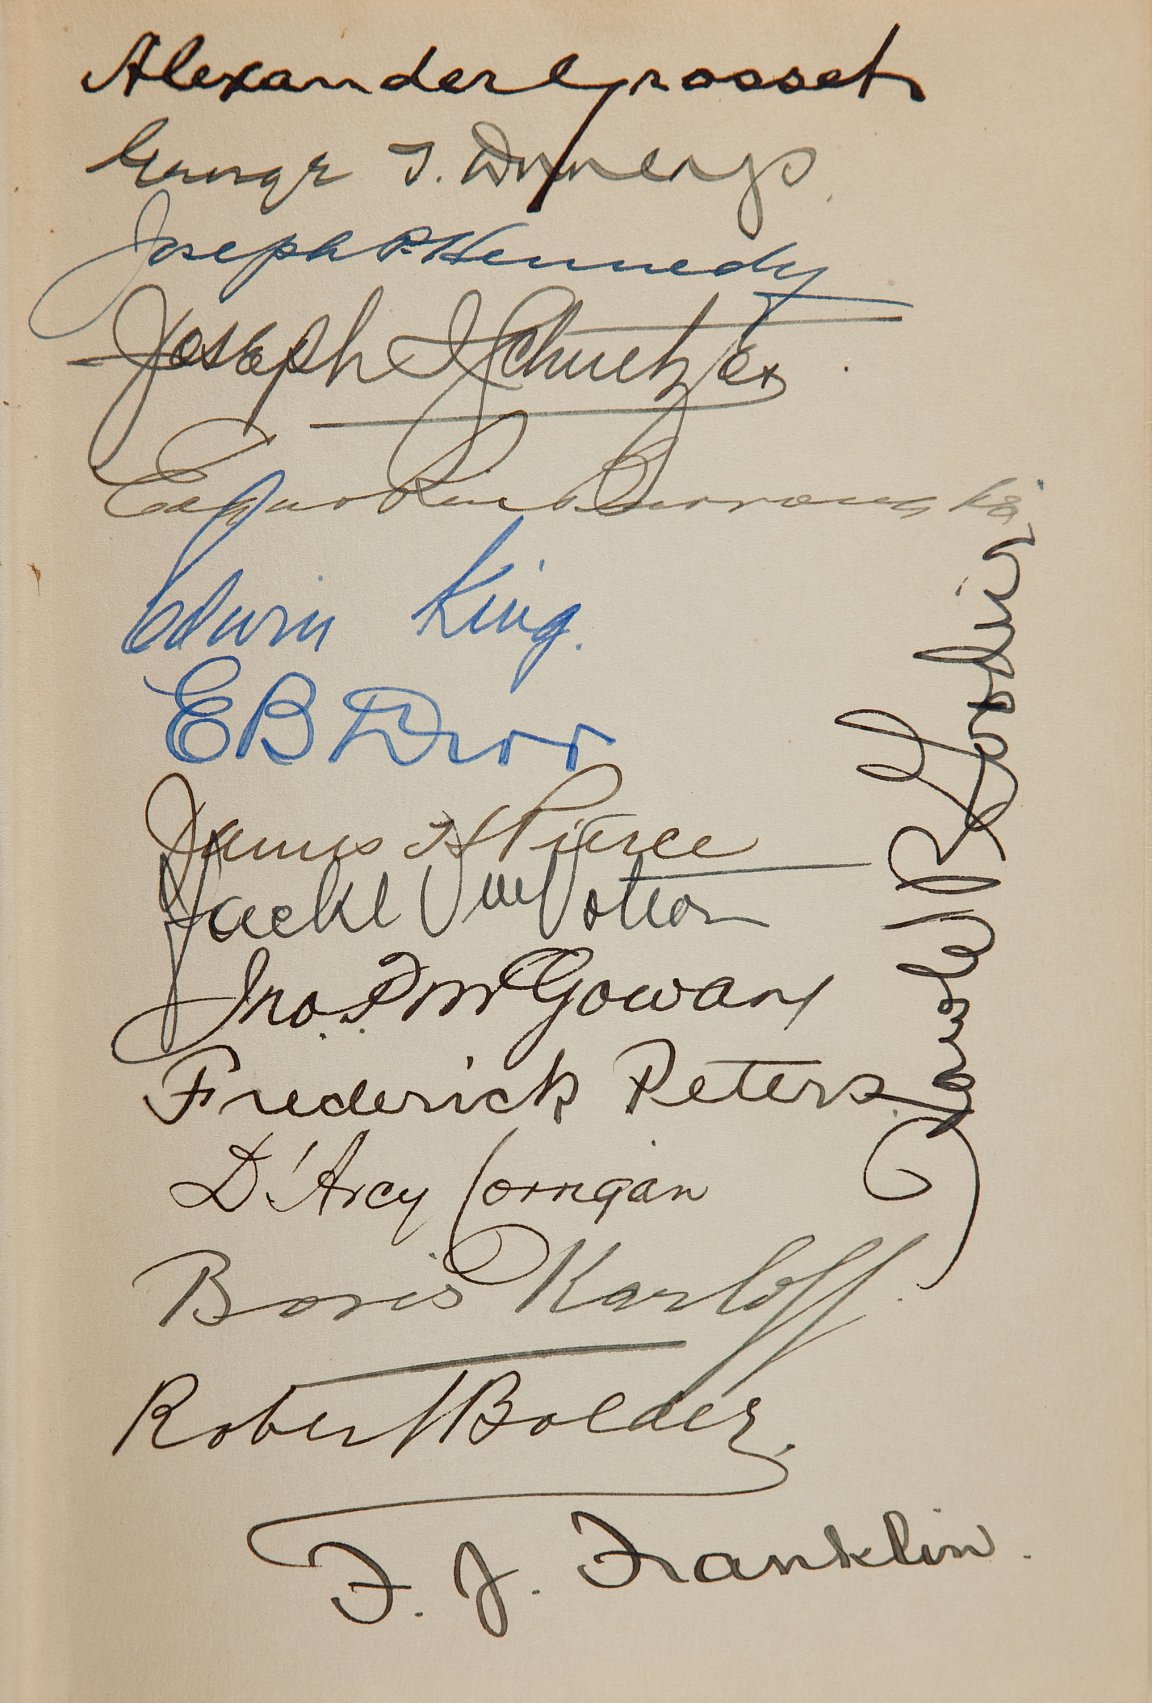 Alexander Grosset
George T. Dunlap
Joseph P. Kennedy
Joseph I Schnitzer
Edgar Rice Burroughs
Edwin King.
E B Derr
James H Pierce
Jackl
Jno. P. McGowan
Frederick Peters
D'Arcy Corrigan
Boris Karloff.
Robert Bolder.
F. J. Franklin.
Charles R